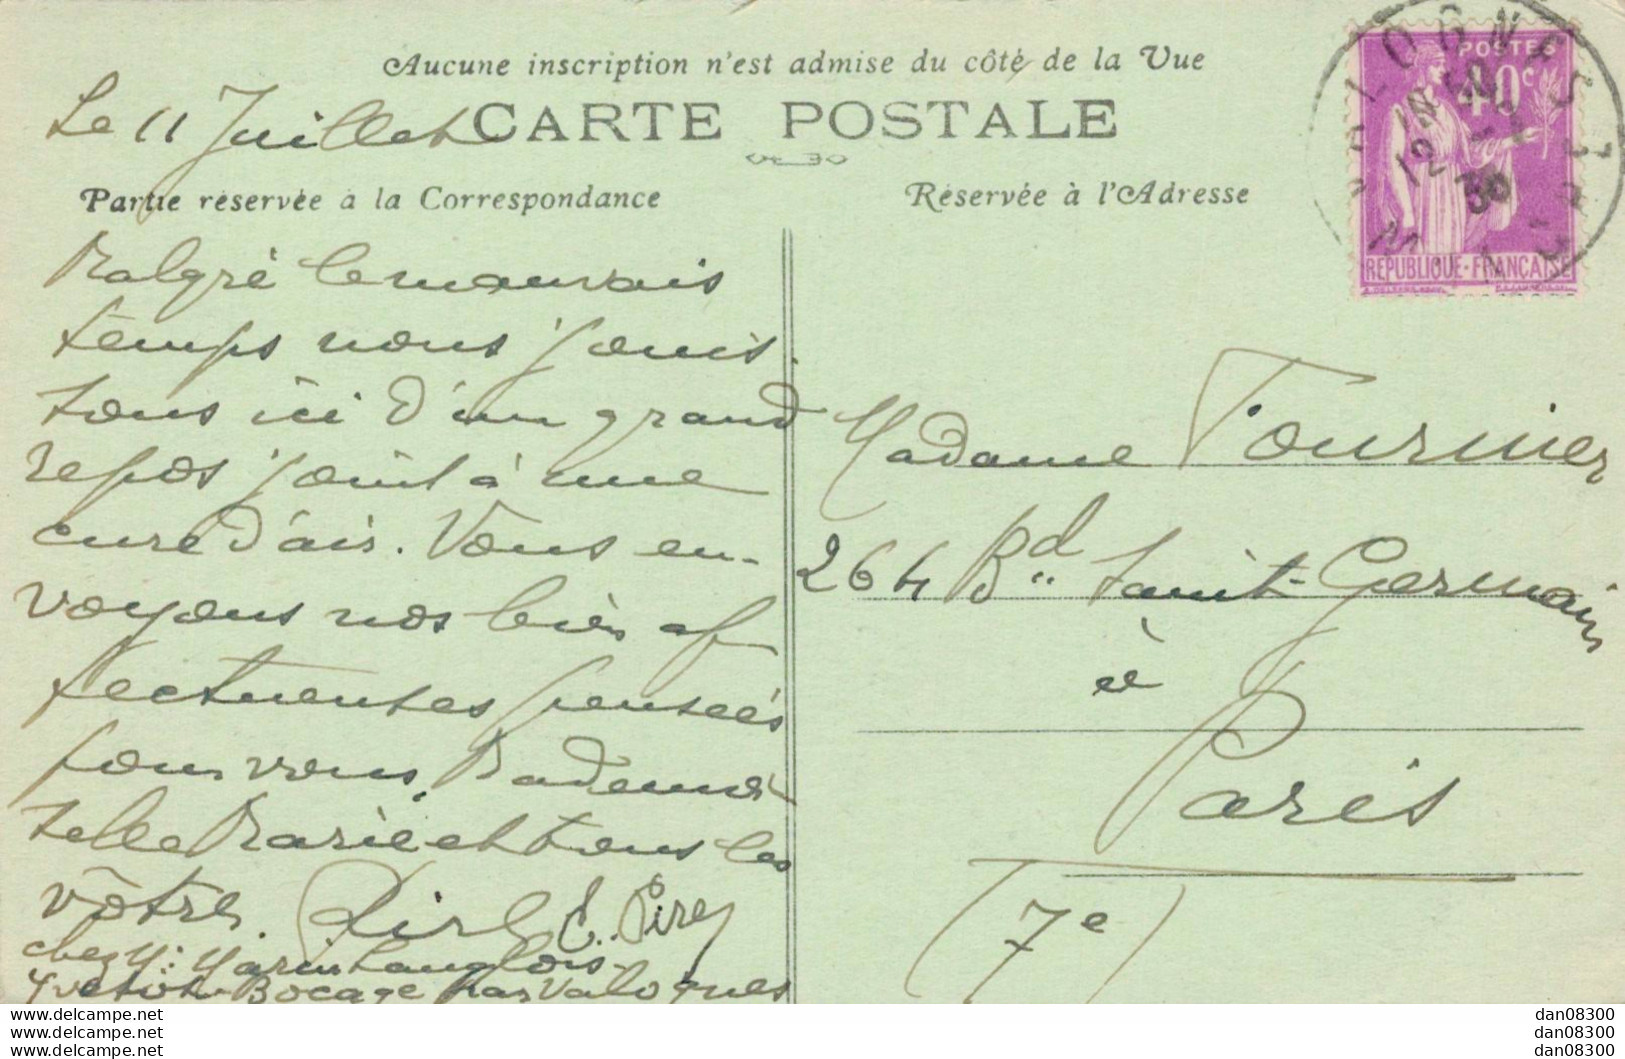 Aucune inscription n'est admise du côté de la Vue
Le 11 Juillet
CARTE POSTALE
Partie réservée à la Correspondance
Réservée à l'Adresse
POSTES
40c
REPUBLIQUE-FRANÇAISE
VALOGNES
MANCHE
Malgré le mauvais
temps nous jouis.
sons ici d'un grand
repos joint à une
cure d'air. Vous en-
voyons nos bien af
fectueuses pensées
pour vous, Mademoi
selle Marie et tous les
vôtres.
E. Pirey
chez M. Marin Langlois
Yvetot-Bocage par Valognes
Madame Fournier
264 Bd Saint-Germain
à
Paris
(7e)
www.delcampe.net
www.delcampe.net
www.delcampe.net
dan08300
dan08300
dan08300